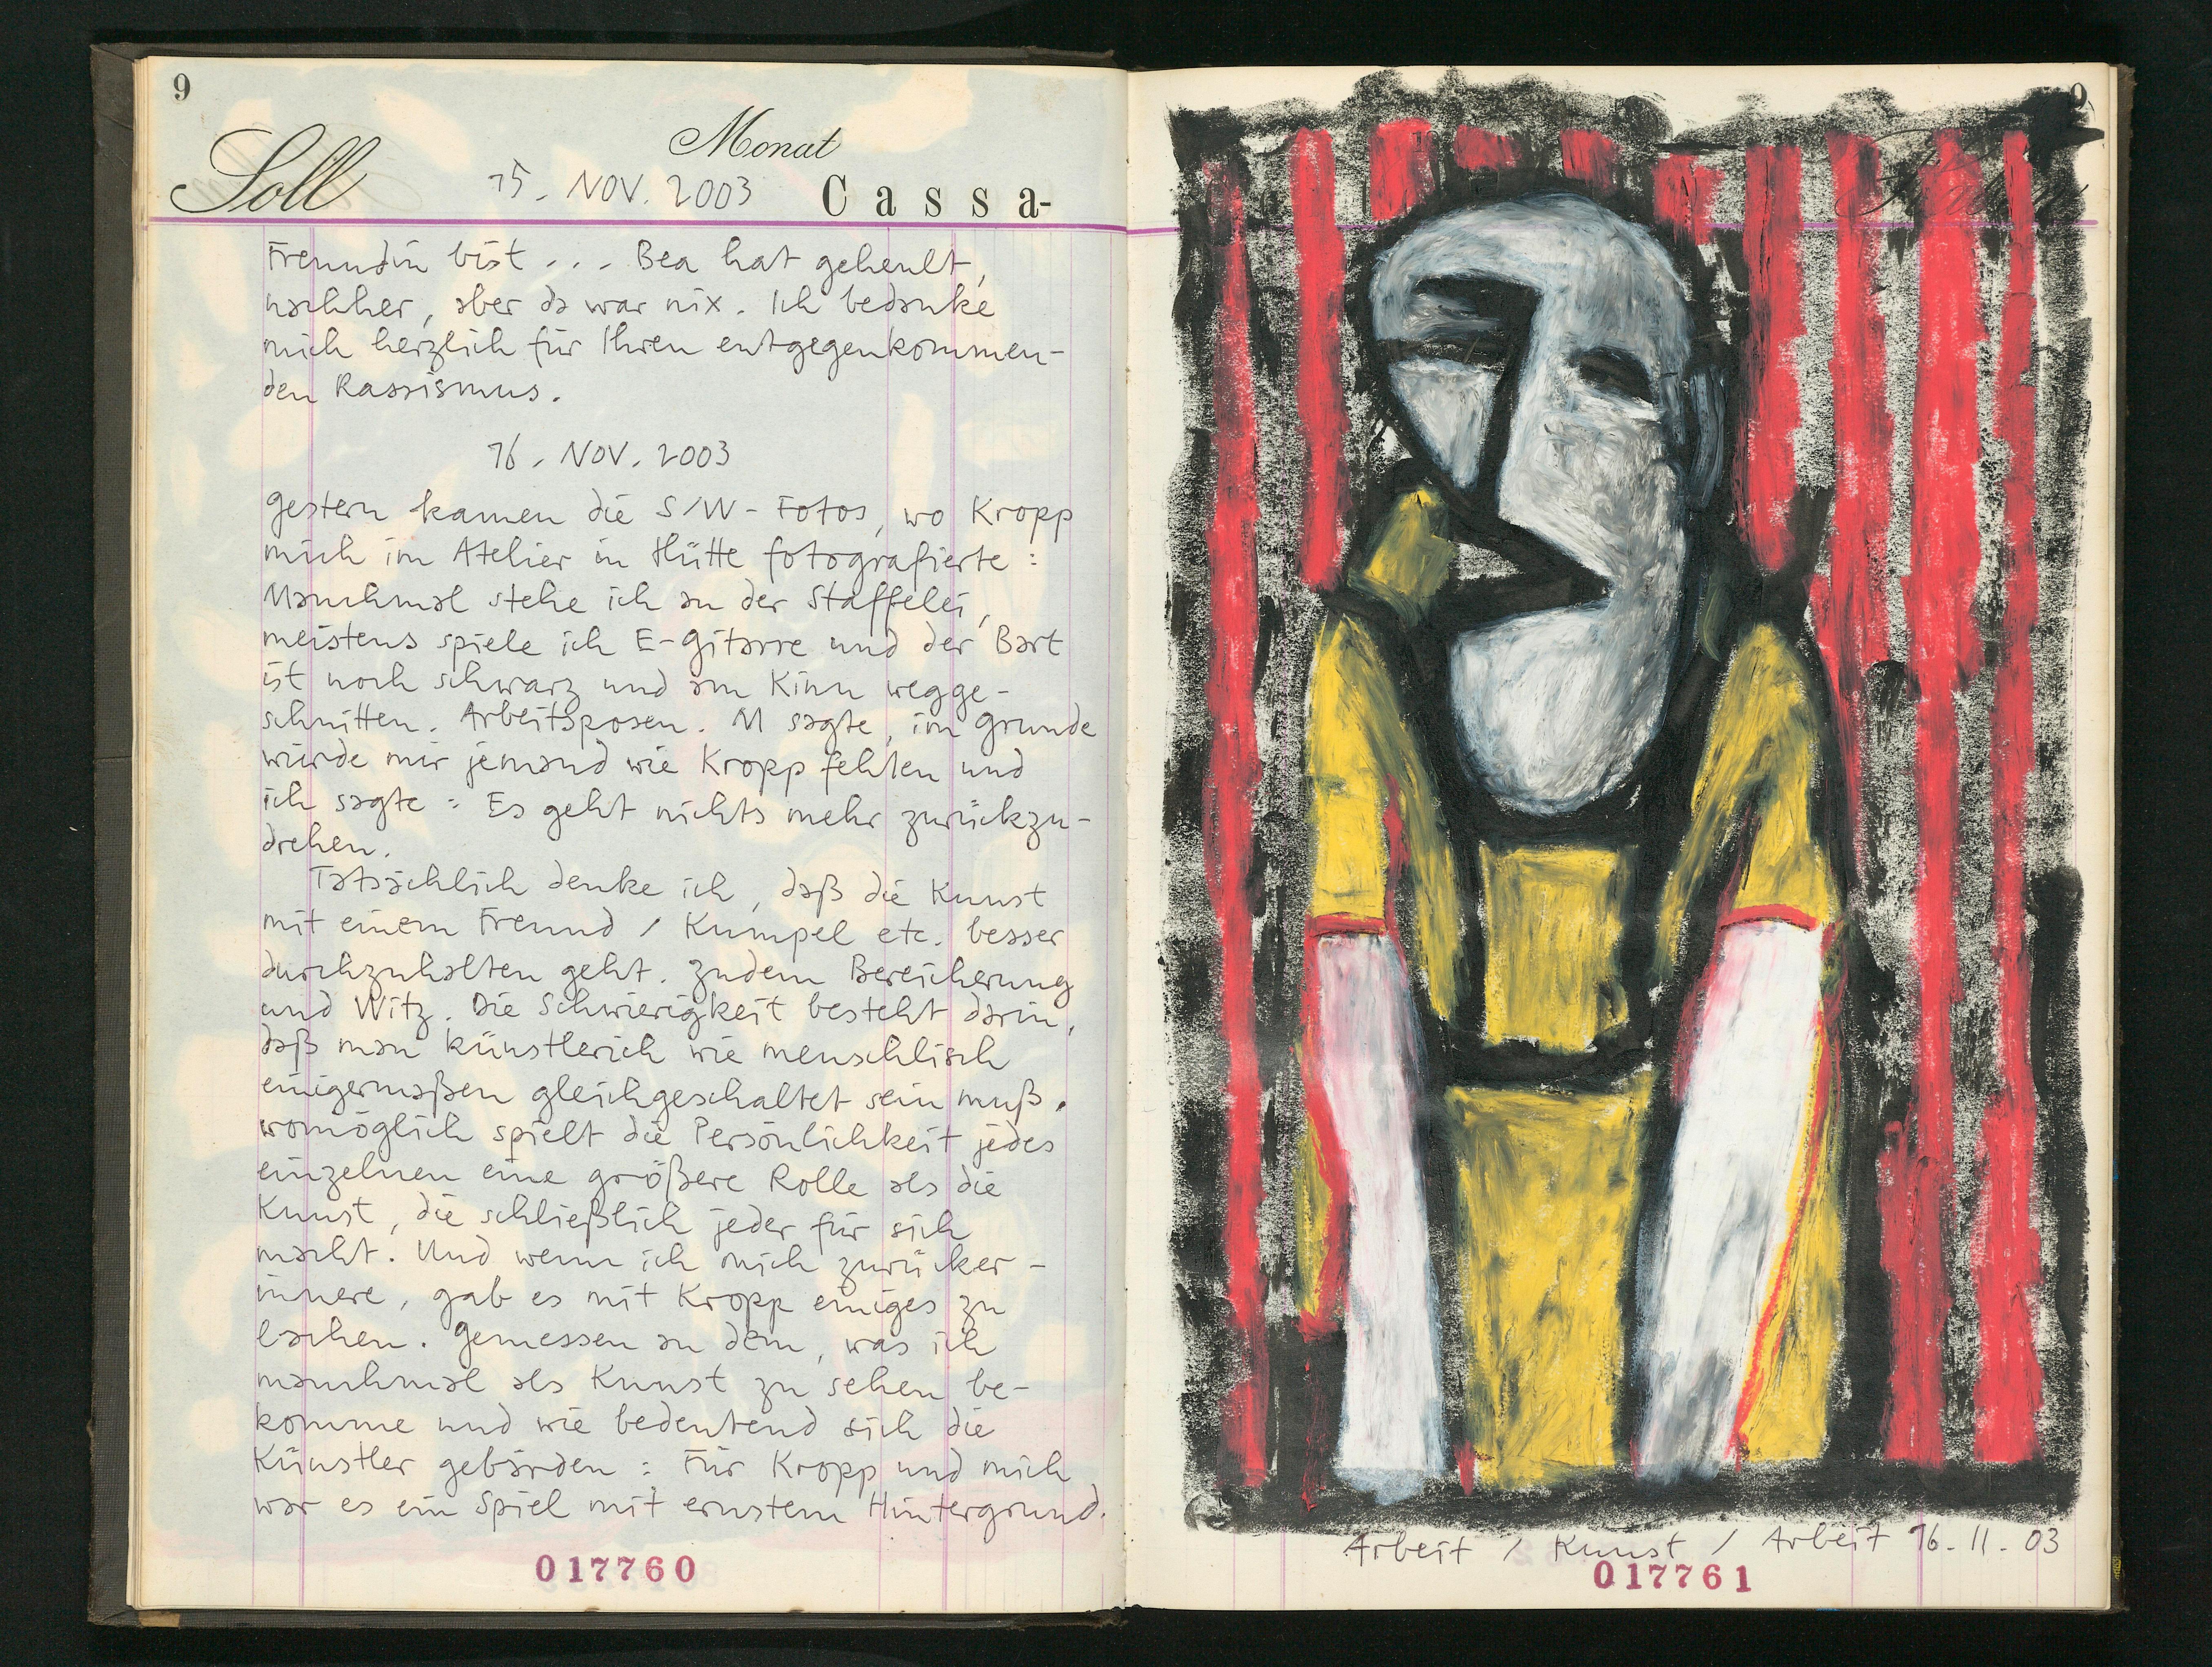 9
Monat
Soll 15. NOV. 2003 Cassa-
Freundin bist... Bea hat geheult,
nachher, aber da war nix. Ich bedanke
mich herzlich für Ihren entgegenkommen-
den Rassismus.
16. NOV. 2003
gestern kamen die S/W-Fotos, wo Kropp
mich im Atelier in Hütte fotografierte:
Manchmal stehe ich an der Staffelei,
meistens spiele ich E-Gitarre und der Bart
ist noch schwarz und am Kinn wegge-
schnitten. Arbeitsposen. M sagte, im Grunde
würde mir jemand wie Kropp fehlen und
ich sagte: Es geht nichts mehr zurückzu-
drehen.
Tatsächlich denke ich, daß die Kunst
mit einem Freund / Kumpel etc. besser
durchzuhalten geht. Zudem Bereicherung
und Witz. Die Schwierigkeit besteht darin,
daß man künstlerich wie menschlisch
einigermaßen gleichgeschaltet sein muß.
womöglich spielt die Persönlichkeit jedes
einzelnen eine größere Rolle als die
Kunst, die schließlich jeder für sich
macht. Und wenn ich mich zurücker-
innere, gab es mit Kropp einiges zu
lachen. Gemessen an dem, was ich
manchmal als Kunst zu sehen be-
komme und wie bedeutend sich die
Künstler gebärden: Für Kropp und mich
war es ein Spiel mit ernstem Hintergrund.
017760
9
Arbeit / Kunst / Arbeit 16.11.03
017761